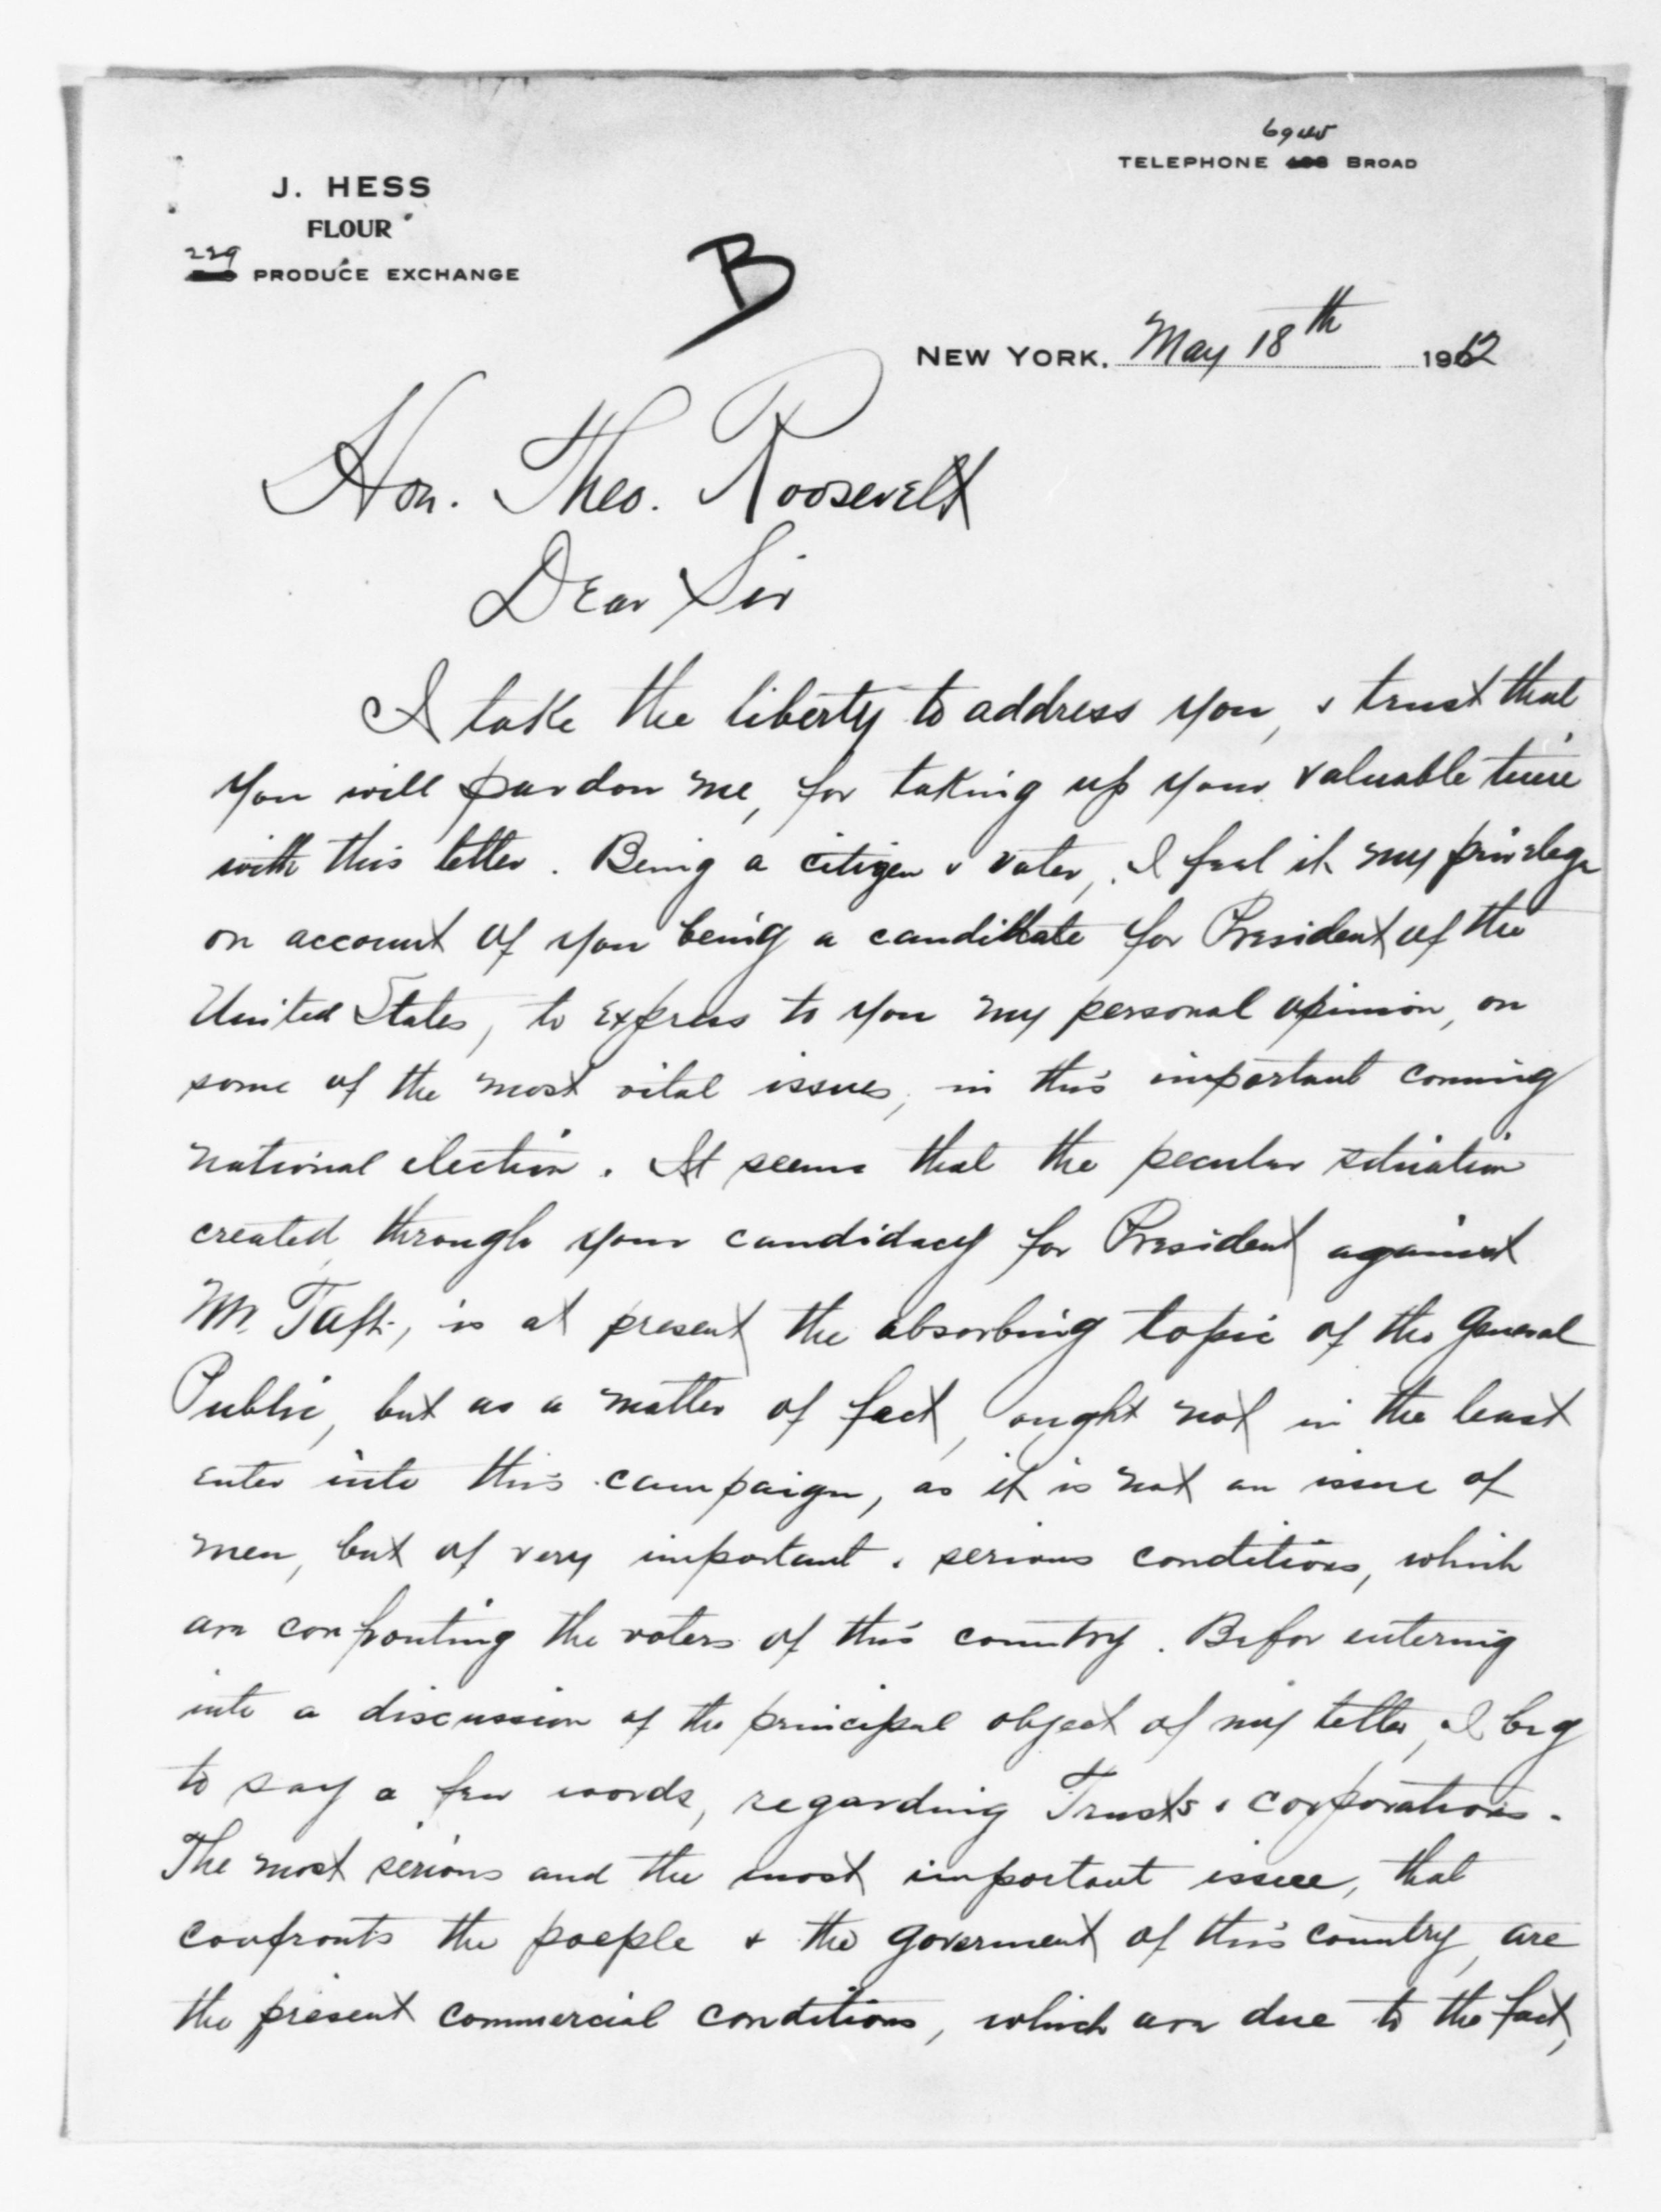 6945
TELEPHONE BROAD
J. HESS
FLOUR
229
PRODUCE EXCHANGE
B
NEW YORK, May 18th 1912
Hon. Theo. Roosevelt
Dear Sir
I take the liberty to address you, & trust that
you will pardon me, for taking up your valuable time
with this letter. Being a citizen & voter, I feel it my privelege
on account of you being a candidate for President of the
United States, to express to you my personal opinion, on
some of the most vital issues, in this important comming
national election. It seems that the peculer situation
created through your candidacy for President against
Mr. Taft, is at present the absorbing topic of the General
Public, but as a matter of fact, ought not in the least
enter into this campaign, as it is not an issue of
men, but of very important & serious conditions, which
are confronting the voters of this country. Befor entering
into a discussion of the principal object of my letter, I beg
to say a few words, regarding Trusts & corporations.
The most serious and the most important issue, that
confronts the poeple & the goverment of this country, are
the present commercial conditions, which are due to the fact,